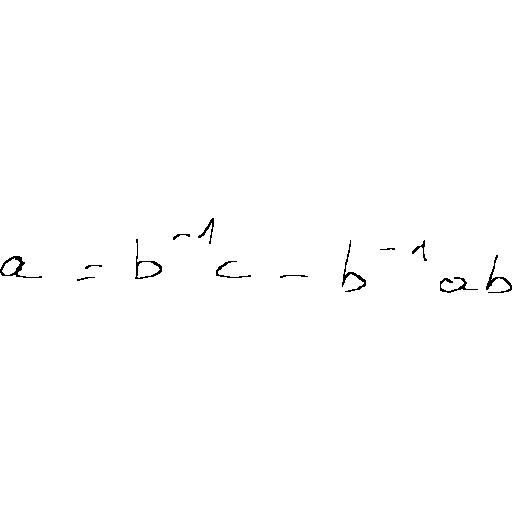 a = b^{-1}c - b^{-1}ab